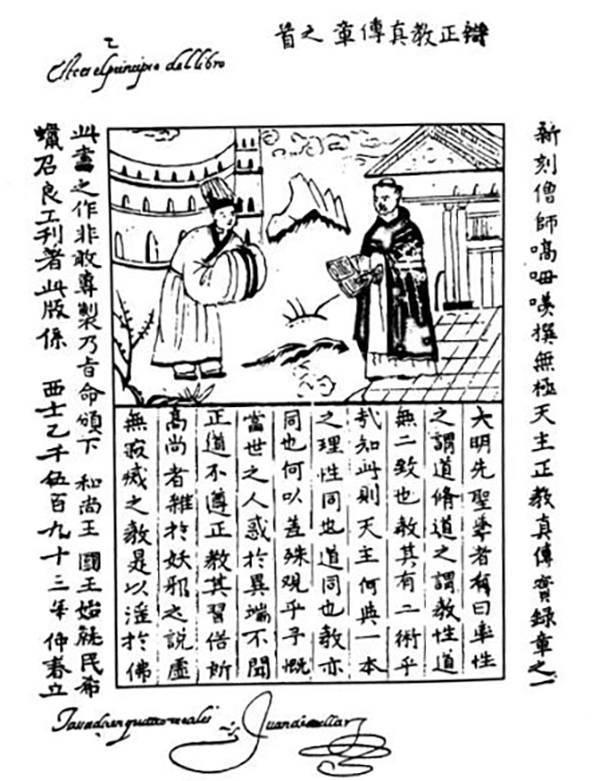 辯正教真傳章之首
Aca es el principio del libro
新刻僧師嗃呣𠿕撰無極天主正教真傳實錄章之一
大明先聖學者稱曰率性
之謂道脩道之謂教性道
無二致也教其有二術乎
哉知此則天主何與一本
之理性同也道同也教亦
同也何以差殊觀乎予慨
當世之人惑於異端不聞
正道不遵正教其習俗所
高尚者雜於妖邪之說虛
無寂滅之教是以滛於佛
此書之作非敢專製乃旨命頒下 和尚王 國王始就民希
蠟召良工刊著此版係 西士乙千伍百九十三年仲春立
Tassado en quatro reales
Juan de cuellar